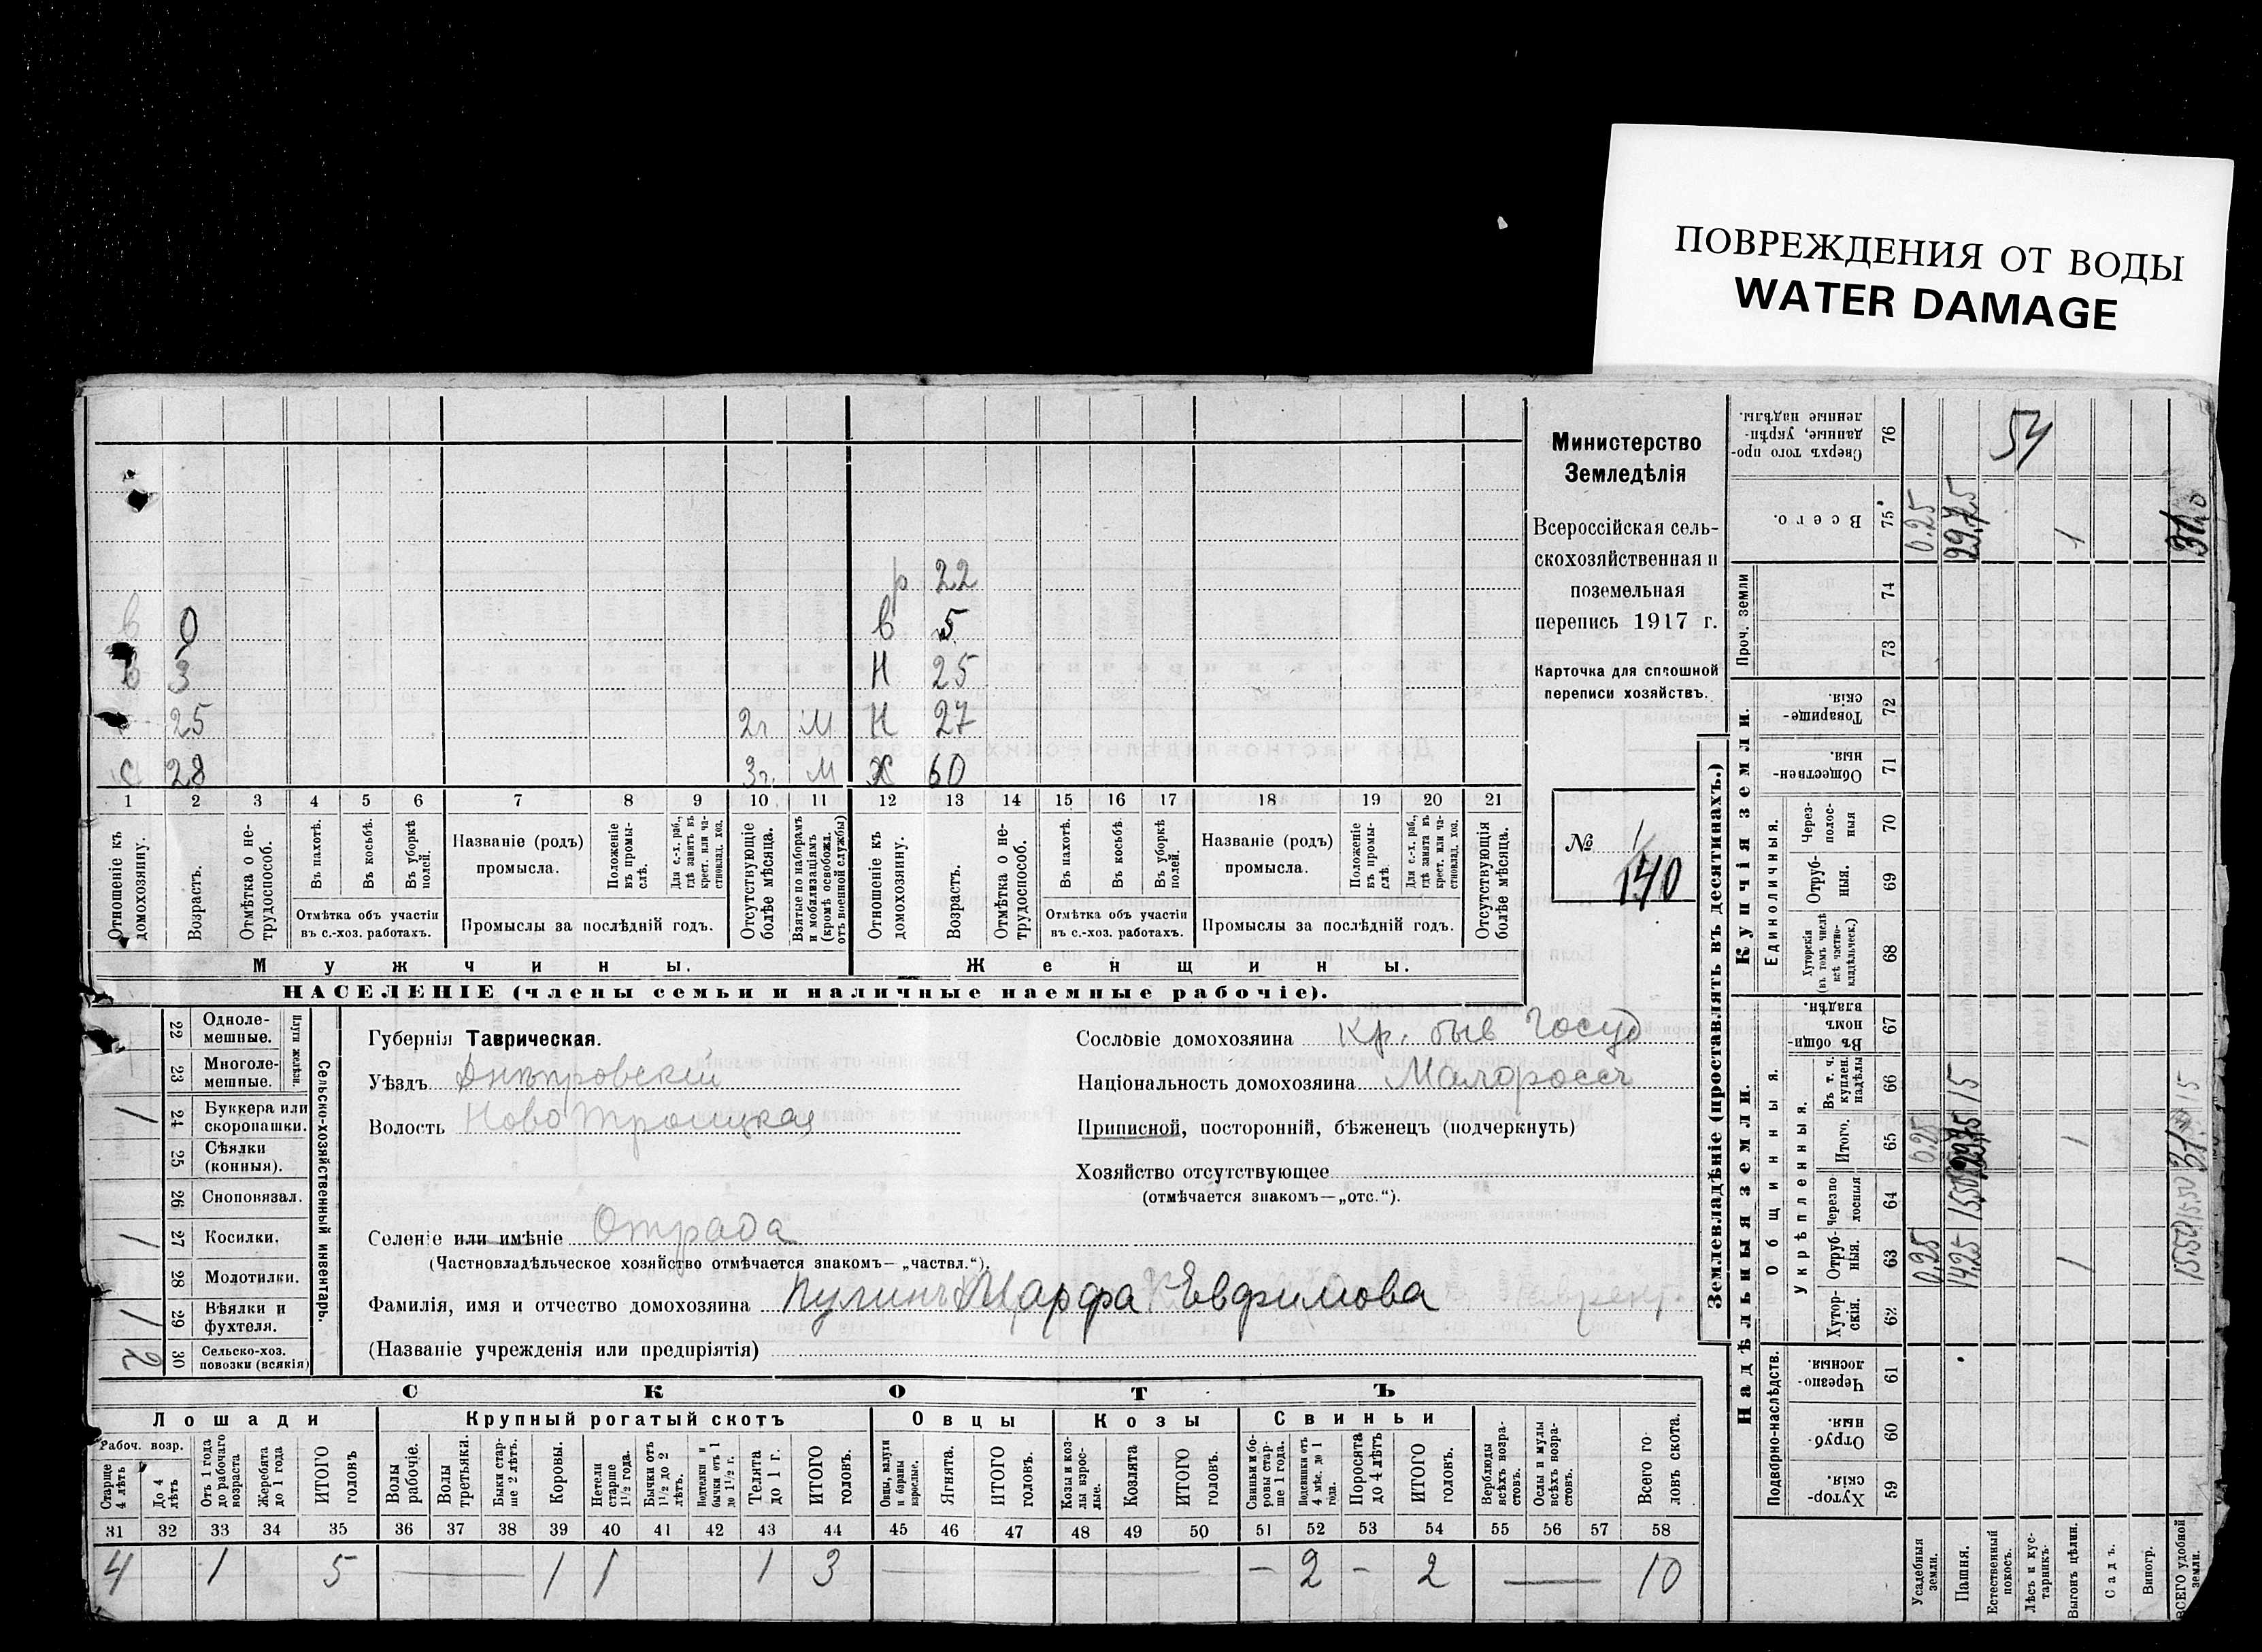 ПОВРЕЖДЕНИЯ ОТ ВОДЫ
WATER DAMAGE
Министерство
Земледѣлія
Всероссійская сель-
скохозяйственная и
поземельная
перепись 1917 г.
Карточка для сплошной
переписи хозяйствъ.
№ 1
140
р 22
в 0 в 5
в 3 н 25
25 2г М н 27
с 28 3г. М ж 60
1 2 3 4 5 6 7 8 9 10 11 12 13 14 15 16 17 18 19 20 21
Отношеніе къ домохозяину.
Возрастъ.
Отмѣтка о не-трудоспособ.
Въ пахотѣ.
Въ косьбѣ.
Въ уборкѣ полей.
Отмѣтка объ участіи
въ с.-хоз. работахъ.
Названіе (родъ)
промысла.
Положеніе въ промы-слѣ.
Для с.-х. раб., гдѣ занятъ въ крест. или ча-стновлад. хоз.
Промыслы за послѣдній годъ.
Отсутствующіе болѣе мѣсяца.
Взятые по наборамъ и мобилизаціямъ (кромѣ освобожд. отъ военной службы)
Отношеніе къ домохозяину.
Возрастъ.
Отмѣтка о не-трудоспособ.
Въ пахотѣ.
Въ косьбѣ.
Въ уборкѣ полей.
Отмѣтка объ участіи
въ с.-хоз. работахъ.
Названіе (родъ)
промысла.
Положеніе въ промы-слѣ.
Для с.-х. раб., гдѣ занята въ крест. или ча-стновлад. хоз.
Промыслы за послѣдній годъ.
Отсутствующія болѣе мѣсяца.
Мужчины. Женщины.
НАСЕЛЕНІЕ (члены семьи и наличные наемные рабочіе).
Сельско-хозяйственный инвентарь.
Плуги желѣзн.
22 Одноле-мешные.
23 Многоле-мешные.
1 24 Буккера или скоропашки.
25 Сѣялки (конныя).
26 Сноповязал.
1 27 Косилки.
28 Молотилки.
1 29 Вѣялки и фухтеля.
2 30 Сельско-хоз. повозки (всякія)
Губернія Таврическая.
Уѣздъ Днѣпровскій
Волость Ново Троицкая
Селеніе или имѣніе Отрада
(Частновладѣльческое хозяйство отмѣчается знакомъ— „частвл.“).
Фамилія, имя и отчество домохозяина Марфа Евфимова
(Названіе учрежденія или предпріятія)
Сословіе домохозяина Кр. быв Госуд
Національность домохозяина Малороссъ
Приписной, посторонній, бѣженецъ (подчеркнуть)
Хозяйство отсутствующее
(отмѣчается знакомъ—„отс.“).
СКОТЪ
Лошади Крупный рогатый скотъ Овцы Козы Свиньи
Рабоч. возр.
Старше 4 лѣтъ
До 4 лѣтъ
Отъ 1 года до рабочаго возраста
Жеребята до 1 года
ИТОГО головъ
Волы рабочіе.
Волы третьяки.
Быки стар-ше 2 лѣтъ.
Коровы.
Нетели старше 1½ года.
Бычки отъ 1½ до 2 лѣтъ.
Подтелки и бычки отъ 1 до 1½ г.
Телята до 1 г.
ИТОГО головъ.
Овцы, валухи и бараны взрослые.
Ягнята.
ИТОГО головъ.
Козы и коз-лы взрос-лые.
Козлята
ИТОГО головъ.
Свиньи и бо-ровы стар-ше 1 года.
Подсвинки отъ 4 мѣс. до 1 года.
Поросята до 4 лѣтъ
ИТОГО головъ.
Верблюды всѣхъ возра-стовъ.
Ослы и мулы всѣхъ возра-стовъ.
Всего го-ловъ скота.
31 32 33 34 35 36 37 38 39 40 41 42 43 44 45 46 47 48 49 50 51 52 53 54 55 56 57 58
4 1 5 — 1 1 1 3 — — 2 — 2 — 10
Землевладѣніе (проставлять въ десятинахъ.)
Надѣльныя земли. Купчія земли.
Проч. земли
Подворно-наслѣдств.
Общинныя.
Укрѣпленныя.
Единоличныя.
76 Сверхъ того про-данные, укрѣп-ленные надѣлы. 54
75 Всего. 0.25 29.75 1
74
73
72 Товарище-скія.
71 Обществен-ныя
70 Через-полос-ныя
69 Отруб-ныя.
68 Хуторскія (въ томъ числѣ всѣ частно-владѣльческ.)
67 Въ общи-номъ владѣн.
66 Въ т. ч. куплен. надѣлы 15 15
65 Итого. 0.25 29.75 1
64 Черезпо-лосныя 15.50 15.50
63 Отруб-ныя. 0.25 14.25 1
62 Хутор-скія.
61 Черезпо-лосныя
60 Отруб-ныя.
59 Хутор-скія.
Усадебныя земли.
Пашня.
Естественный покосъ.
Лѣсъ и кус-тарникъ.
Выгонъ цѣлин.
Садъ.
Виногр.
ВСЕГО удобной земли.